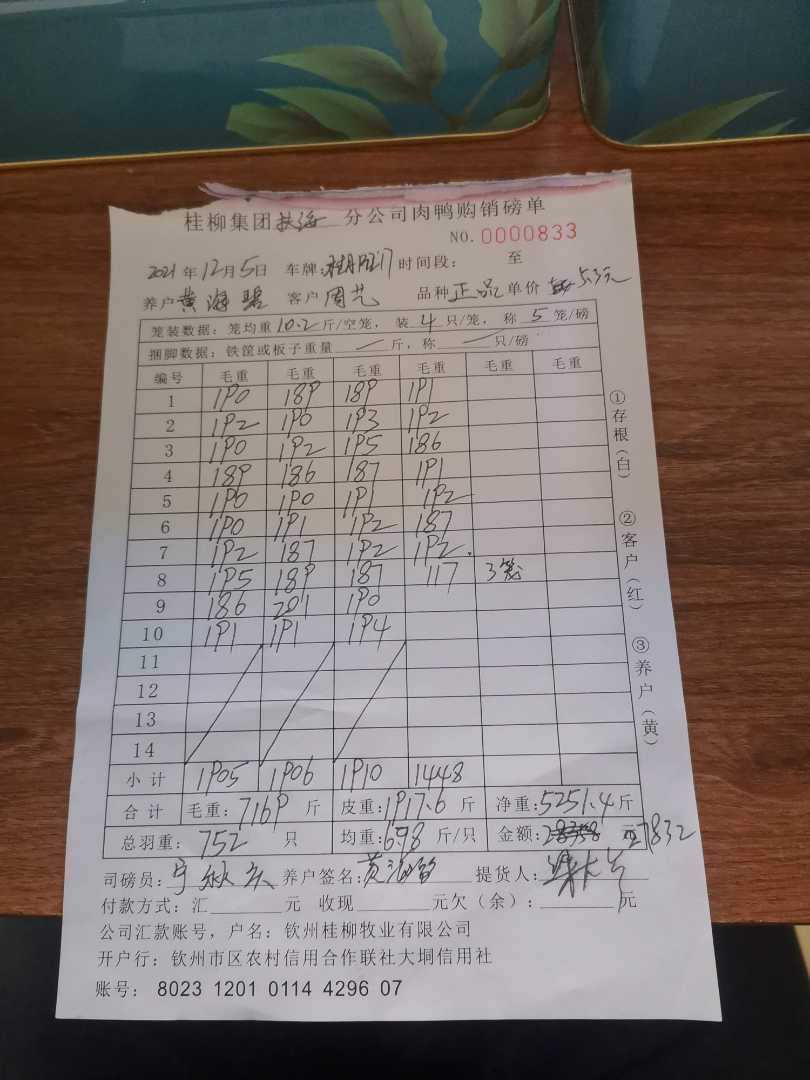 桂柳集团 扶海 分公司肉鸭购销磅单
NO.0000833
2021年12月5日 车牌: 时间段: 至
养户 黄海碧 客户 周艺 品种 正品 单价 5.3元
笼装数据: 笼均重 10.2 斤/空笼, 装 4 只/笼, 称 5 笼/磅
捆脚数据: 铁筐或板子重量 — 斤, 称 — 只/磅
编号 毛重 毛重 毛重 毛重 毛重 毛重
1 190 189 189 191
2 192 190 193 192
3 190 192 195 186
4 189 186 187 191
5 190 190 191 192
6 190 191 192 187
7 192 187 192 192.
8 195 189 187 117 3笼
9 186 201 190
10 191 191 194
11
12
13
14
小计 1905 1906 1910 1448
合计 毛重: 7169 斤 皮重: 1917.6 斤 净重: 5251.4 斤
总羽重: 752 只 均重: 6.98 斤/只 金额: 27832 元
司磅员: 养户签名: 黄海碧 提货人:
付款方式: 汇 元 收现 元欠(余): 元
公司汇款账号, 户名: 钦州桂柳牧业有限公司
开户行: 钦州市区农村信用合作联社大垌信用社
账号: 8023 1201 0114 4296 07
①存根(白)
②客户(红)
③养户(黄)